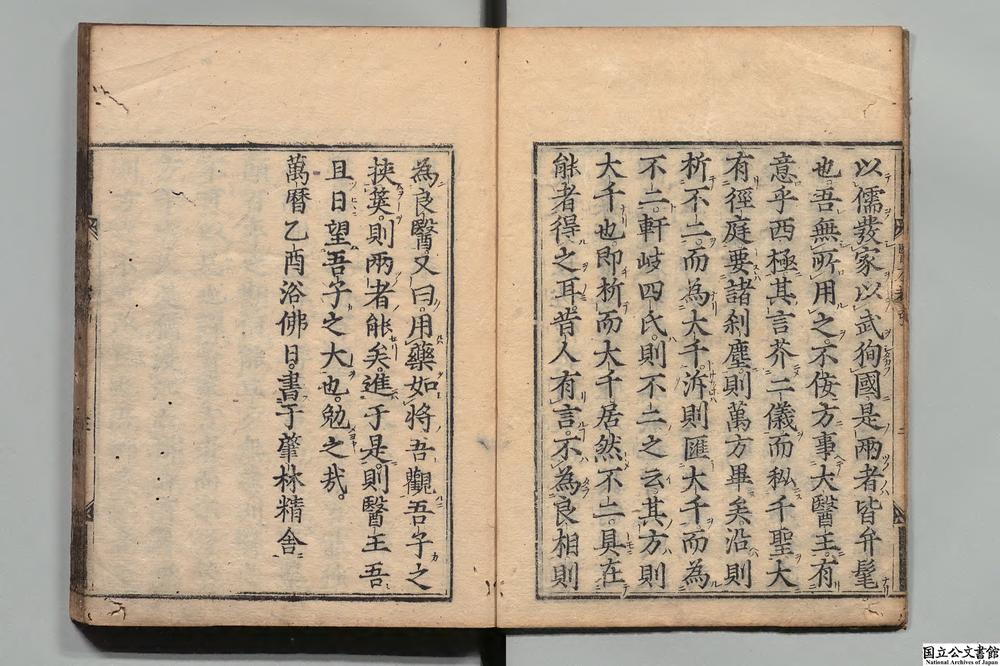 以儒發家以武狥國是兩者皆弁髦
也吾無所用之不侫方事大醫王有
意乎西極其言芥二儀而私千聖大
有徑庭要諸刹塵則萬方畢矣沿則
析不二而為大千泝則匯大千而為
不二軒岐四氏則不二之云其方則
大千也即析而大千居然不二具在
能者得之耳昔人有言不為良相則
為良醫又曰用藥如將吾觀吾子之
挾莢則兩者能矣進于是則醫王吾
且日望吾子之大也勉之哉
萬曆乙酉浴佛日書于肇林精舍
国立公文書館
National Archives of Japan